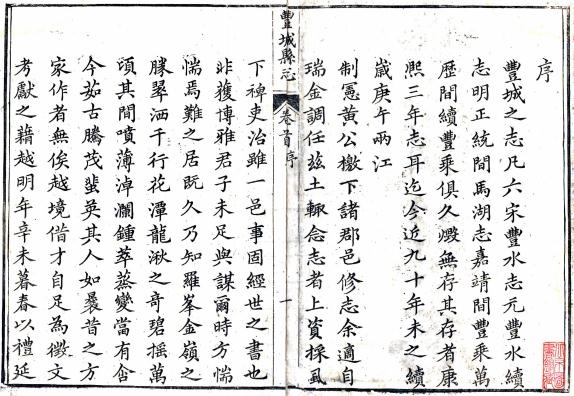 序
豐城之志凡六宋豐水志元豐水續
志明正統間馬湖志嘉靖間豐乘萬
歷間續豐乘俱久燬無存其存者康
熙三年志耳迄今近九十年未之續
歲庚午兩江
制憲黃公檄下諸郡邑修志余適自
瑞金調任茲土輒念志者上資採風
豐城縣志
卷首序
一
下裨吏治雖一邑事固經世之書也
非獲博雅君子未足與謀爾時方惴
惴焉難之居既久乃知羅峯金嶺之
勝翠洒千行花潭龍湫之奇碧搖萬
頃其間噴薄淖瀾鍾萃蒸變當有含
今茹古騰茂蜚英其人如曩昔之方
家作者無俟越境借才自足為徵文
考獻之藉越明年辛未暮春以禮延